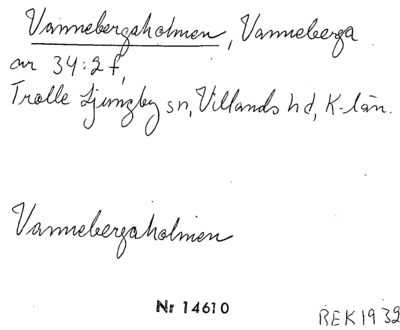 Vannebergaholmen, Vanneberga
nr 34:2 f,
Trolle Ljungby sn, Villands hd, K-län.
Vannebergaholmen
Nr 14610
BEK 1932